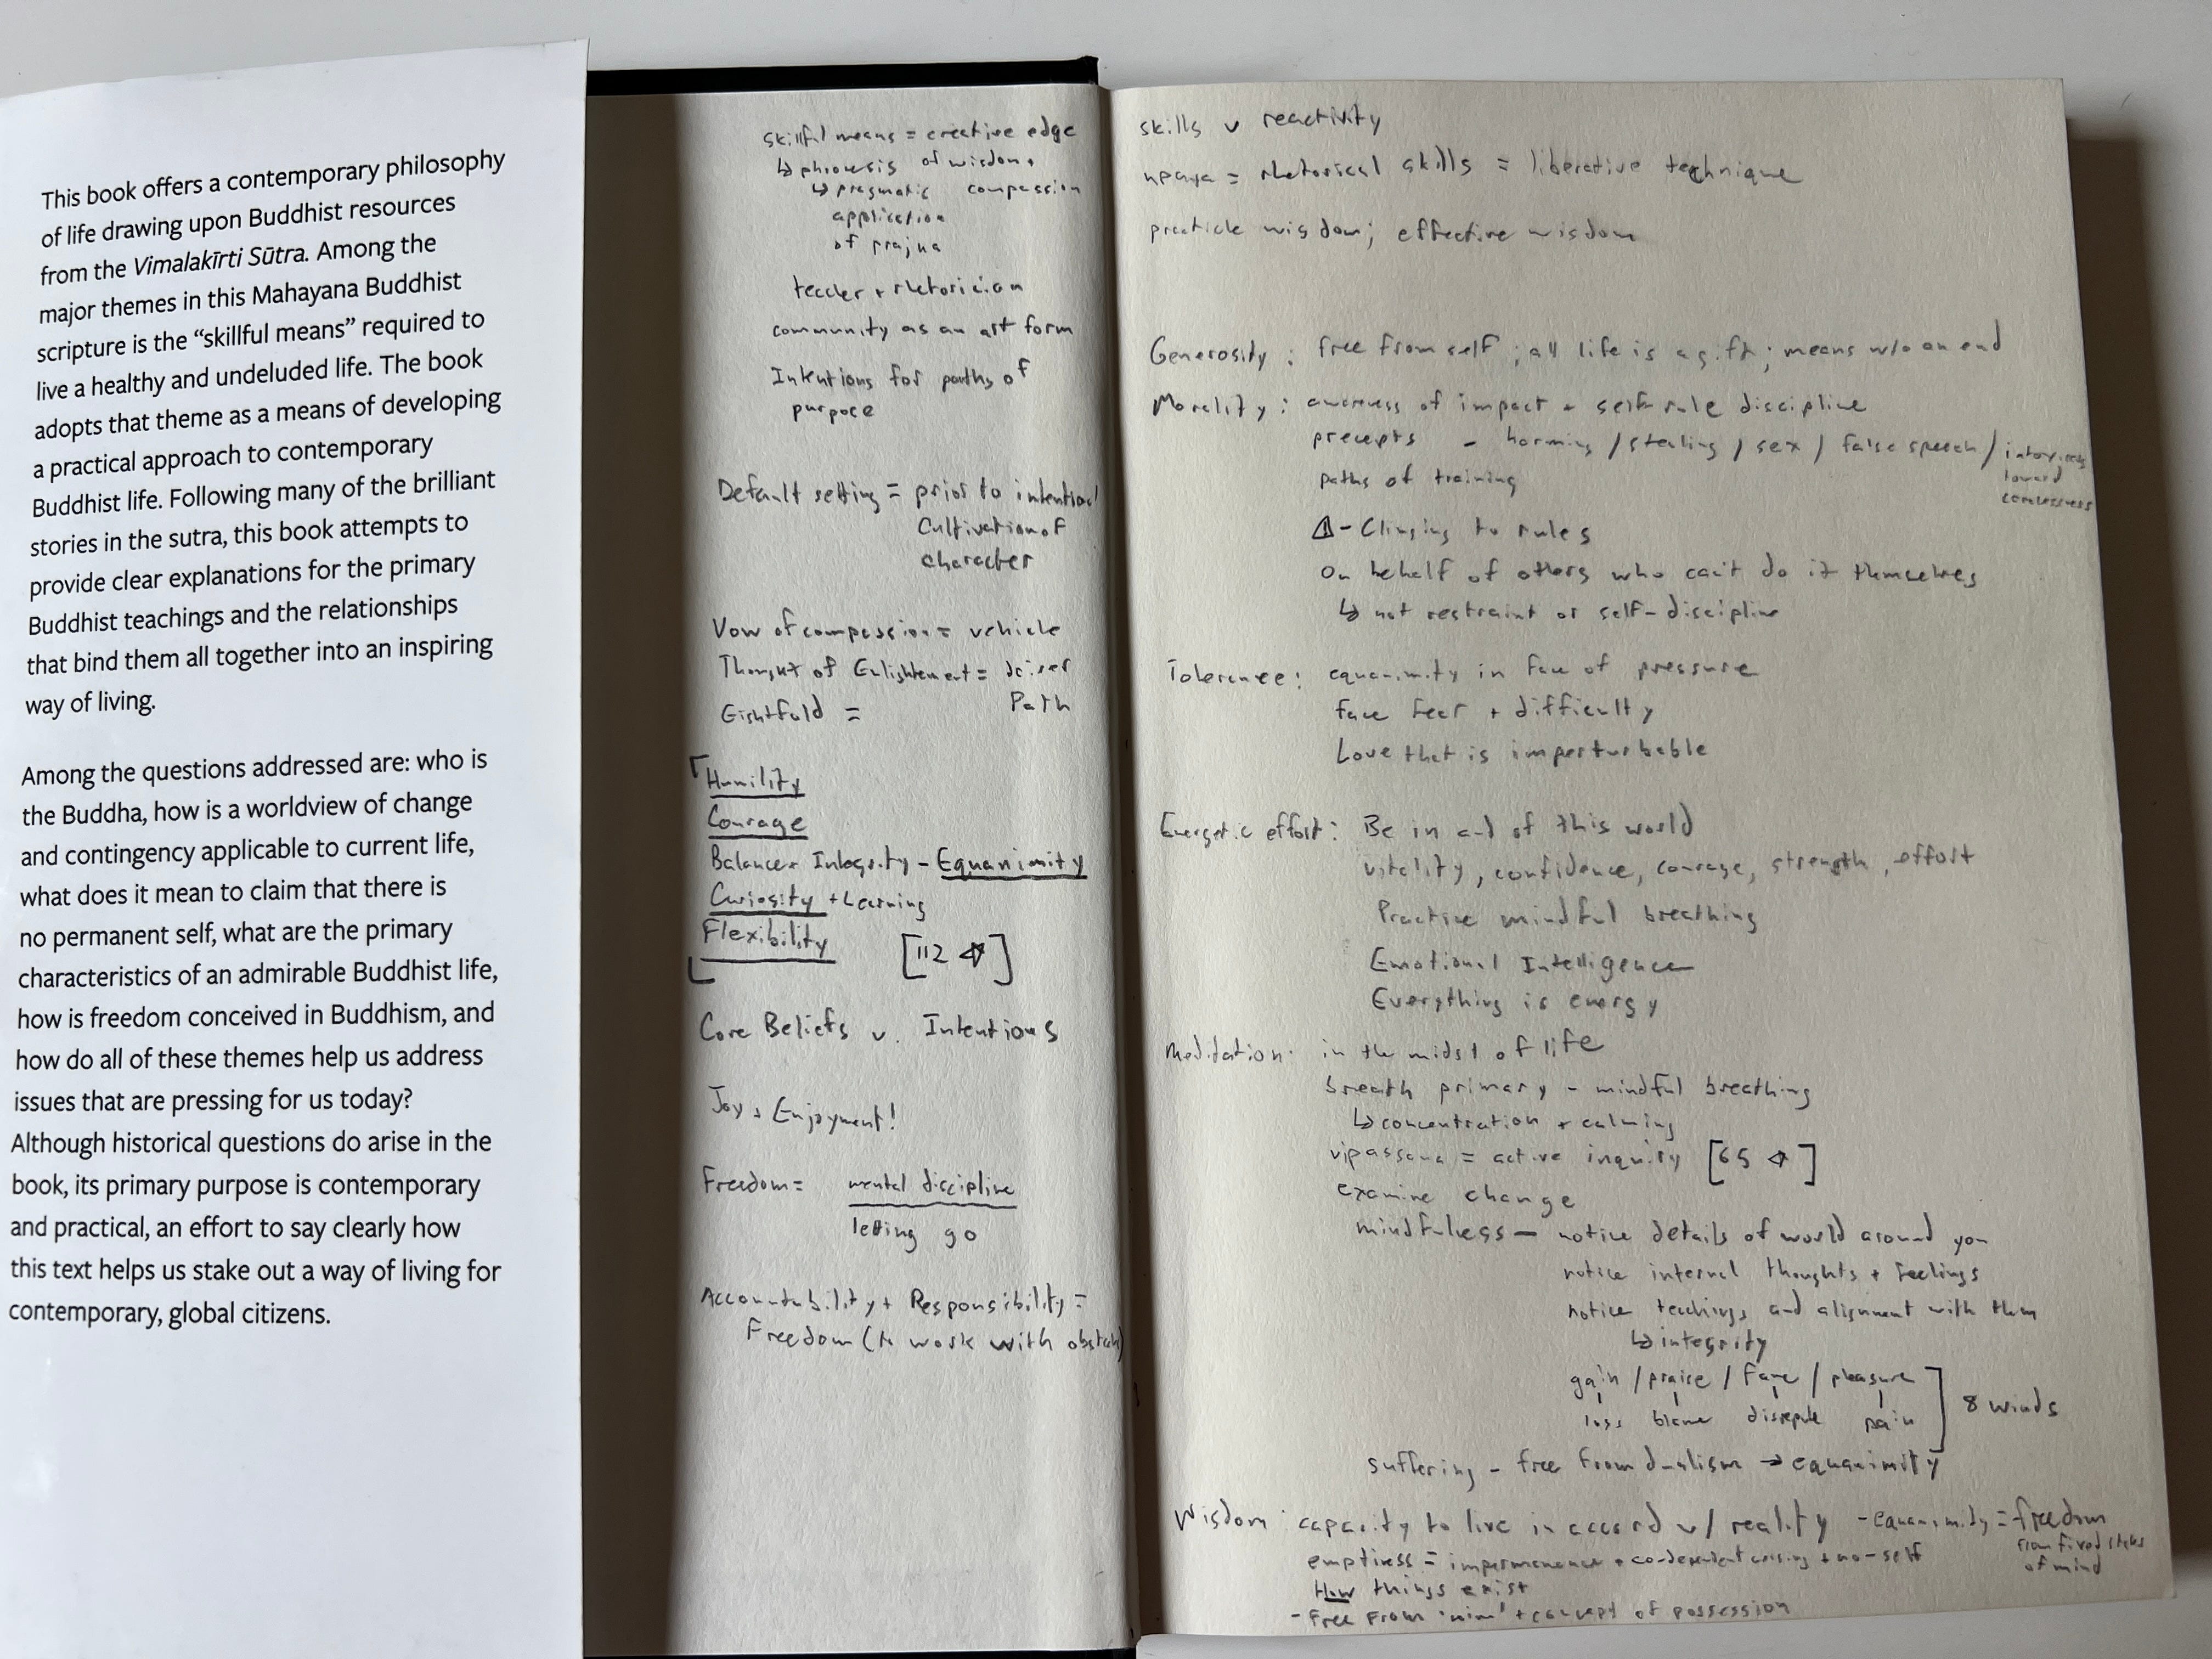 This book offers a contemporary philosophy
of life drawing upon Buddhist resources
from the Vimalakīrti Sūtra. Among the
major themes in this Mahayana Buddhist
scripture is the “skillful means” required to
live a healthy and undeluded life. The book
adopts that theme as a means of developing
a practical approach to contemporary
Buddhist life. Following many of the brilliant
stories in the sutra, this book attempts to
provide clear explanations for the primary
Buddhist teachings and the relationships
that bind them all together into an inspiring
way of living.
Among the questions addressed are: who is
the Buddha, how is a worldview of change
and contingency applicable to current life,
what does it mean to claim that there is
no permanent self, what are the primary
characteristics of an admirable Buddhist life,
how is freedom conceived in Buddhism, and
how do all of these themes help us address
issues that are pressing for us today?
Although historical questions do arise in the
book, its primary purpose is contemporary
and practical, an effort to say clearly how
this text helps us stake out a way of living for
contemporary, global citizens.
skillful means = creative edge
↳ phronesis of wisdom +
↳ pragmatic compassion
application
of prajna
teacher + rhetorician
community as an art form
Intentions for paths of
purpose
Default setting = prior to intentional
Cultivation of
character
Vow of compassion = vehicle
Thought of Enlightement = driver
Eightfold = Path
Humility
Courage
Balance + Integrity - Equanimity
Curiosity + Learning
Flexibility [112]
Core Beliefs v. Intentions
Joy + Enjoyment!
Freedom = mental discipline
letting go
Accountability + Responsibility =
Freedom (to work with
skills v reactivity
upaya = rhetorical skills = liberative technique
wisdom; effective wisdom
Generosity: free from self; all life is a gift; means w/o an end
Morality: awareness of impact + self-rule discipline
precepts - harming / stealing / sex / false speech /
toward
paths of training
⚠-Clinging to rules
On behalf of others who can't do it themselves
↳ not restraint or self-discipline
Tolerance: equanimity in face of pressure
face fear + difficulty
Love that is imperturbable
Energetic effort: Be in and of this world
vitality, confidence, courage, strength, effort
Practice mindful breathing
Emotional Intelligence
Everything is energy
Meditation: in the midst of life
breath primary - mindful breathing
↳ concentration + calming
vipassana = active inquiry [65]
examine change
mindfulness - notice details of world around you
notice internal thoughts + feelings
notice teachings and alignment with them
↳ integrity
gain / praise / fame / pleasure
loss blame disrepute pain
8 winds
suffering - free from dualism → equanimity
Wisdom: capacity to live in accord w/ reality - equanimity = freedom
from fixed states
of mind
emptiness = impermanence + co-dependent arising + no-self
How things exist
- Free from + concept of possession